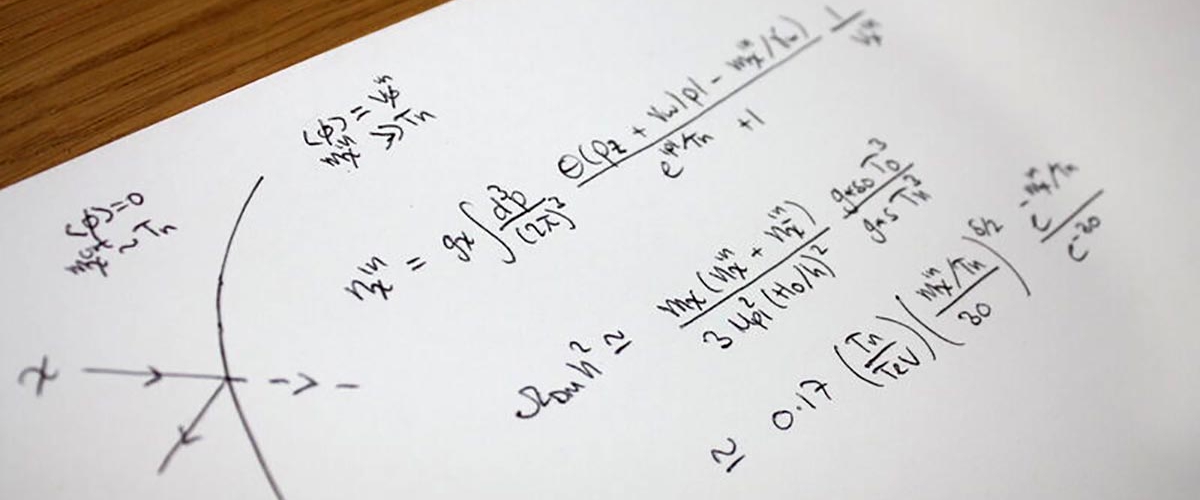 ⟨φ⟩ = 0
~ Tn
⟨φ⟩ = vφ^in
mχ^in ≫ Tn
χ
nχ^in = gχ ∫ d³p/(2π)³ Θ(pz + vw|p| - mχ^in/γw)/(e^{|p|/Tn} + 1) 1/vχ^in
ΩDM h² ≃ mχ(nχ^in + nχ̄^in)/(3 Mpl² (H0/h)²) g*s0 T0³/(g*s Tn³)
≃ 0.17 (Tn/TeV) ((mχ^in/Tn)/30)^{5/2} e^{-mχ^in/Tn}/e^{-30}